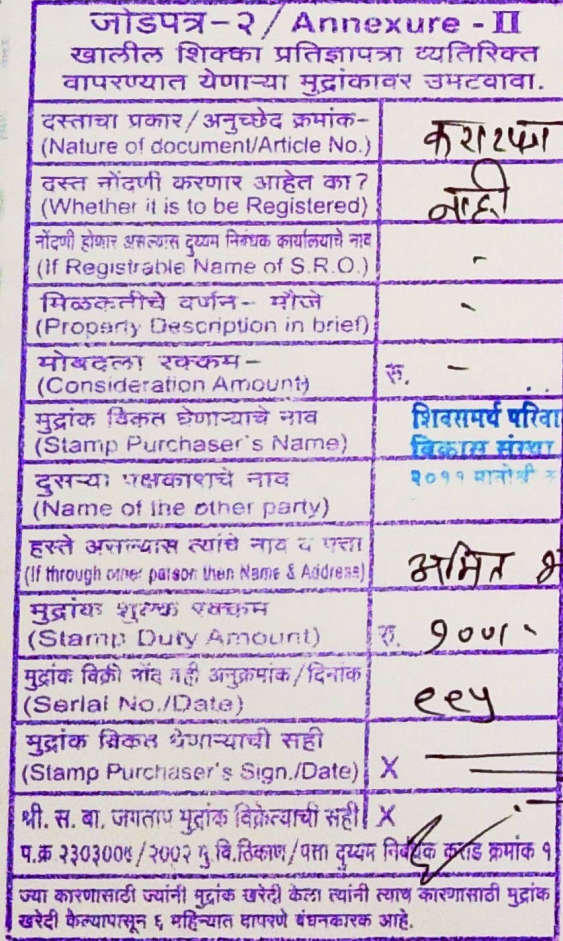 जोडपत्र-२/Annexure - II
खालील शिक्का प्रतिज्ञापत्रा व्यतिरिक्त
वापरण्यात येणाऱ्या मुद्रांकावर उमटवावा.
दस्ताचा प्रकार/अनुच्छेद क्रमांक-
(Nature of document/Article No.)
दस्त नोंदणी करणार आहेत का?
(Whether it is to be Registered)
नाही
नोंदणी होणार असल्यास दुय्यम निबंधक कार्यालयाचे नाव
(If Registrable Name of S.R.O.)
-
मिळकतीचे वर्णन- मौजे
(Property Description in brief)
-
मोबदला रक्कम-
(Consideration Amount)
रु. -
मुद्रांक विकत घेणाऱ्याचे नाव
(Stamp Purchaser's Name)
शिवसमर्थ परिवा
विकास संस्था
२०११
दुसऱ्या पक्षकाराचे नाव
(Name of the other party)
हस्ते असल्यास त्यांचे नाव व पत्ता
(If through other person then Name & Address)
अमित
मुद्रांक शुल्क रक्कम
(Stamp Duty Amount)
रु. १००/-
मुद्रांक विक्री नोंद वही अनुक्रमांक/दिनांक
(Serial No./Date)
मुद्रांक विकत घेणाऱ्याची सही
(Stamp Purchaser's Sign./Date)
X
श्री. स. बा. जगताप मुद्रांक विक्रेत्याची सही X
प.क्र २३०३००५/२००२ मु.वि.ठिकाण/पत्ता दुय्यम निबंधक कराड क्रमांक १
ज्या कारणासाठी ज्यांनी मुद्रांक खरेदी केला त्यांनी त्याच कारणासाठी मुद्रांक
खरेदी केल्यापासून ६ महिन्यात वापरणे बंधनकारक आहे.